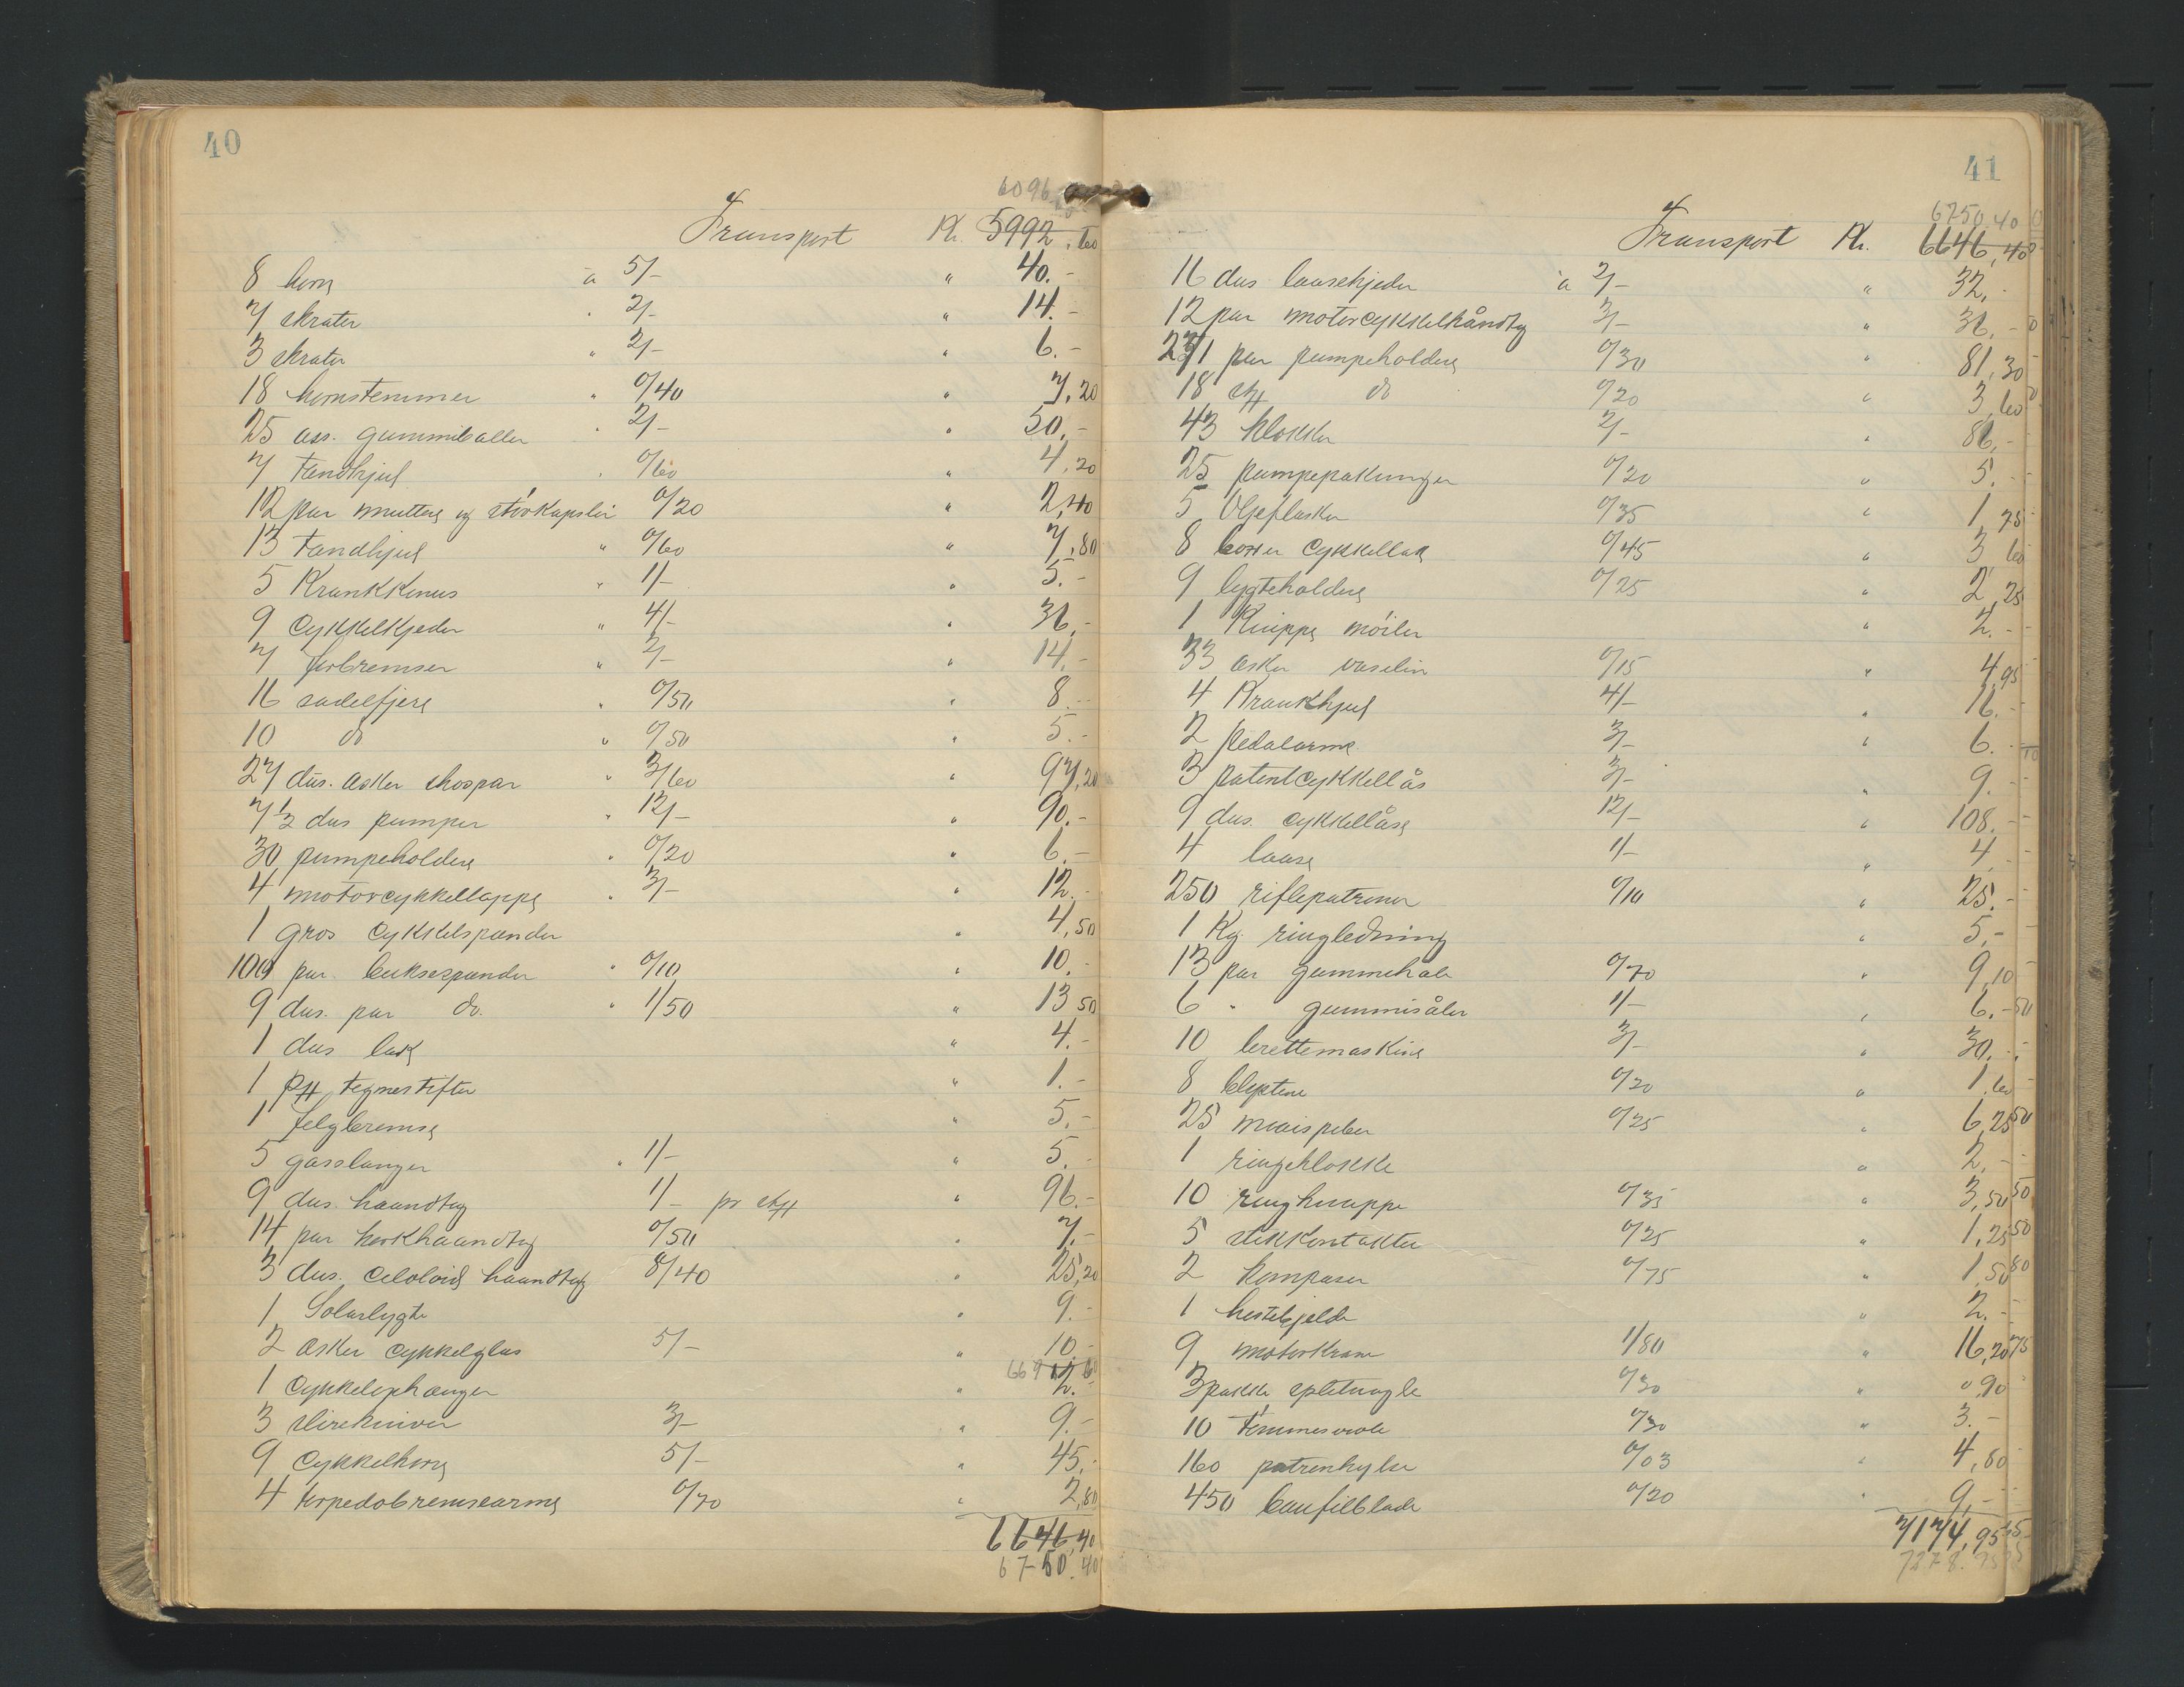 40
6096,60
Transport Kr. 5992,60
8 horn à 5/- " 40.-
7 skruter " 2/- " 14.-
3 skruter " 2/- " 6.-
18 hornstemmer " 0/40 " 7,20
25 ass. gummiballer " 2/- " 50.-
7 tandhjul " 0/60 " 4,20
12 par muttere og støvkapsler 0/20 " 2,40
13 tandhjul " 0/60 " 7,80
5 Krankkonus " 1/- " 5.-
9 Cykkelkjeder " 4/- " 36.-
7 forbremser " 2/- " 14.-
16 sadelfjere " 0/50 " 8.-
10 do " 0/50 " 5.-
27 dus. asker skospar " 3/60 " 97,20
7½ dus pumper " 12/- " 90.-
30 pumpeholdere " 0/20 " 6.-
4 motorcykkellappe " 3/- " 12.-
1 gros Cykkelspænder " 4,50
100 par buksespænder " 0/10 " 10.-
9 dus. par do. " 1/50 " 13 50
1 dus lak " 4.-
1 pk tegnestifter " 1.-
1 Felgbremse " 5.-
5 gasslanger " 1/- " 5.-
9 dus. haandtag 1/- pr stk " 96.-
14 par korkhaandtag 0/50 " 7.-
3 dus. Celoloid haandtag 8/40 " 25,20
1 Solarlygte " 9.-
2 asker Cykkelglas 5/- " 10.-
1 Cykkelophænger " 2.-
3 slirekniver 3/- " 9.-
9 Cykkelhorn 5/- " 45.-
4 torpedobremsearme 0/70 " 2,80
6646,40
6750.40
41
6750,40
Transport Kr. 6646,40
16 dus laasekjeder à 2/- " 32.-
12 par motorcykkelhåndtag 3/- " 36.-
271 par pumpeholdere 0/30 " 81,30
18 stk do 0/20 " 3,60
43 klokker 2/- " 86.-
25 pumpepakninger 0/20 " 5.-
5 Oljeflasker 0/35 " 1,75
8 bokser Cykkellak 0/45 " 3 60
9 lygteholdere 0/25 " 2,25
1 Knippe " 2.-
33 asker vaselin 0/15 " 4,95
4 Krankhjul 4/- " 16.-
2 pedalarme 3/- " 6.-
3 patentcykkellås 3/- " 9.-
9 dus. cykkellåse 12/- " 108.-
4 laase 1/- " 4.-
250 riflepatroner 0/10 " 25.-
1 Kg. ringledning " 5.-
13 par gummihæle 0/70 " 9,10
6 " gummisåler 1/- " 6.-
10 berettemaskine 3/- " 30.-
8 0/20 " 1,60
25 maispiber 0/25 " 6,25
1 ringeklokke " 2.-
10 ringknappe 0/35 " 3,50
5 stikkontakter 0/25 " 1,25
2 kompasser 0/75 " 1,50
1 hestebjelde " 2.-
9 motorkrane 1/80 " 16,20
3 pakke splitnagle 0/30 " 0,90
10 0/30 " 3.-
160 patronhylse 0/03 " 4,80
450 baufilblade 0/20 " 9.-
7174,95
7278.95